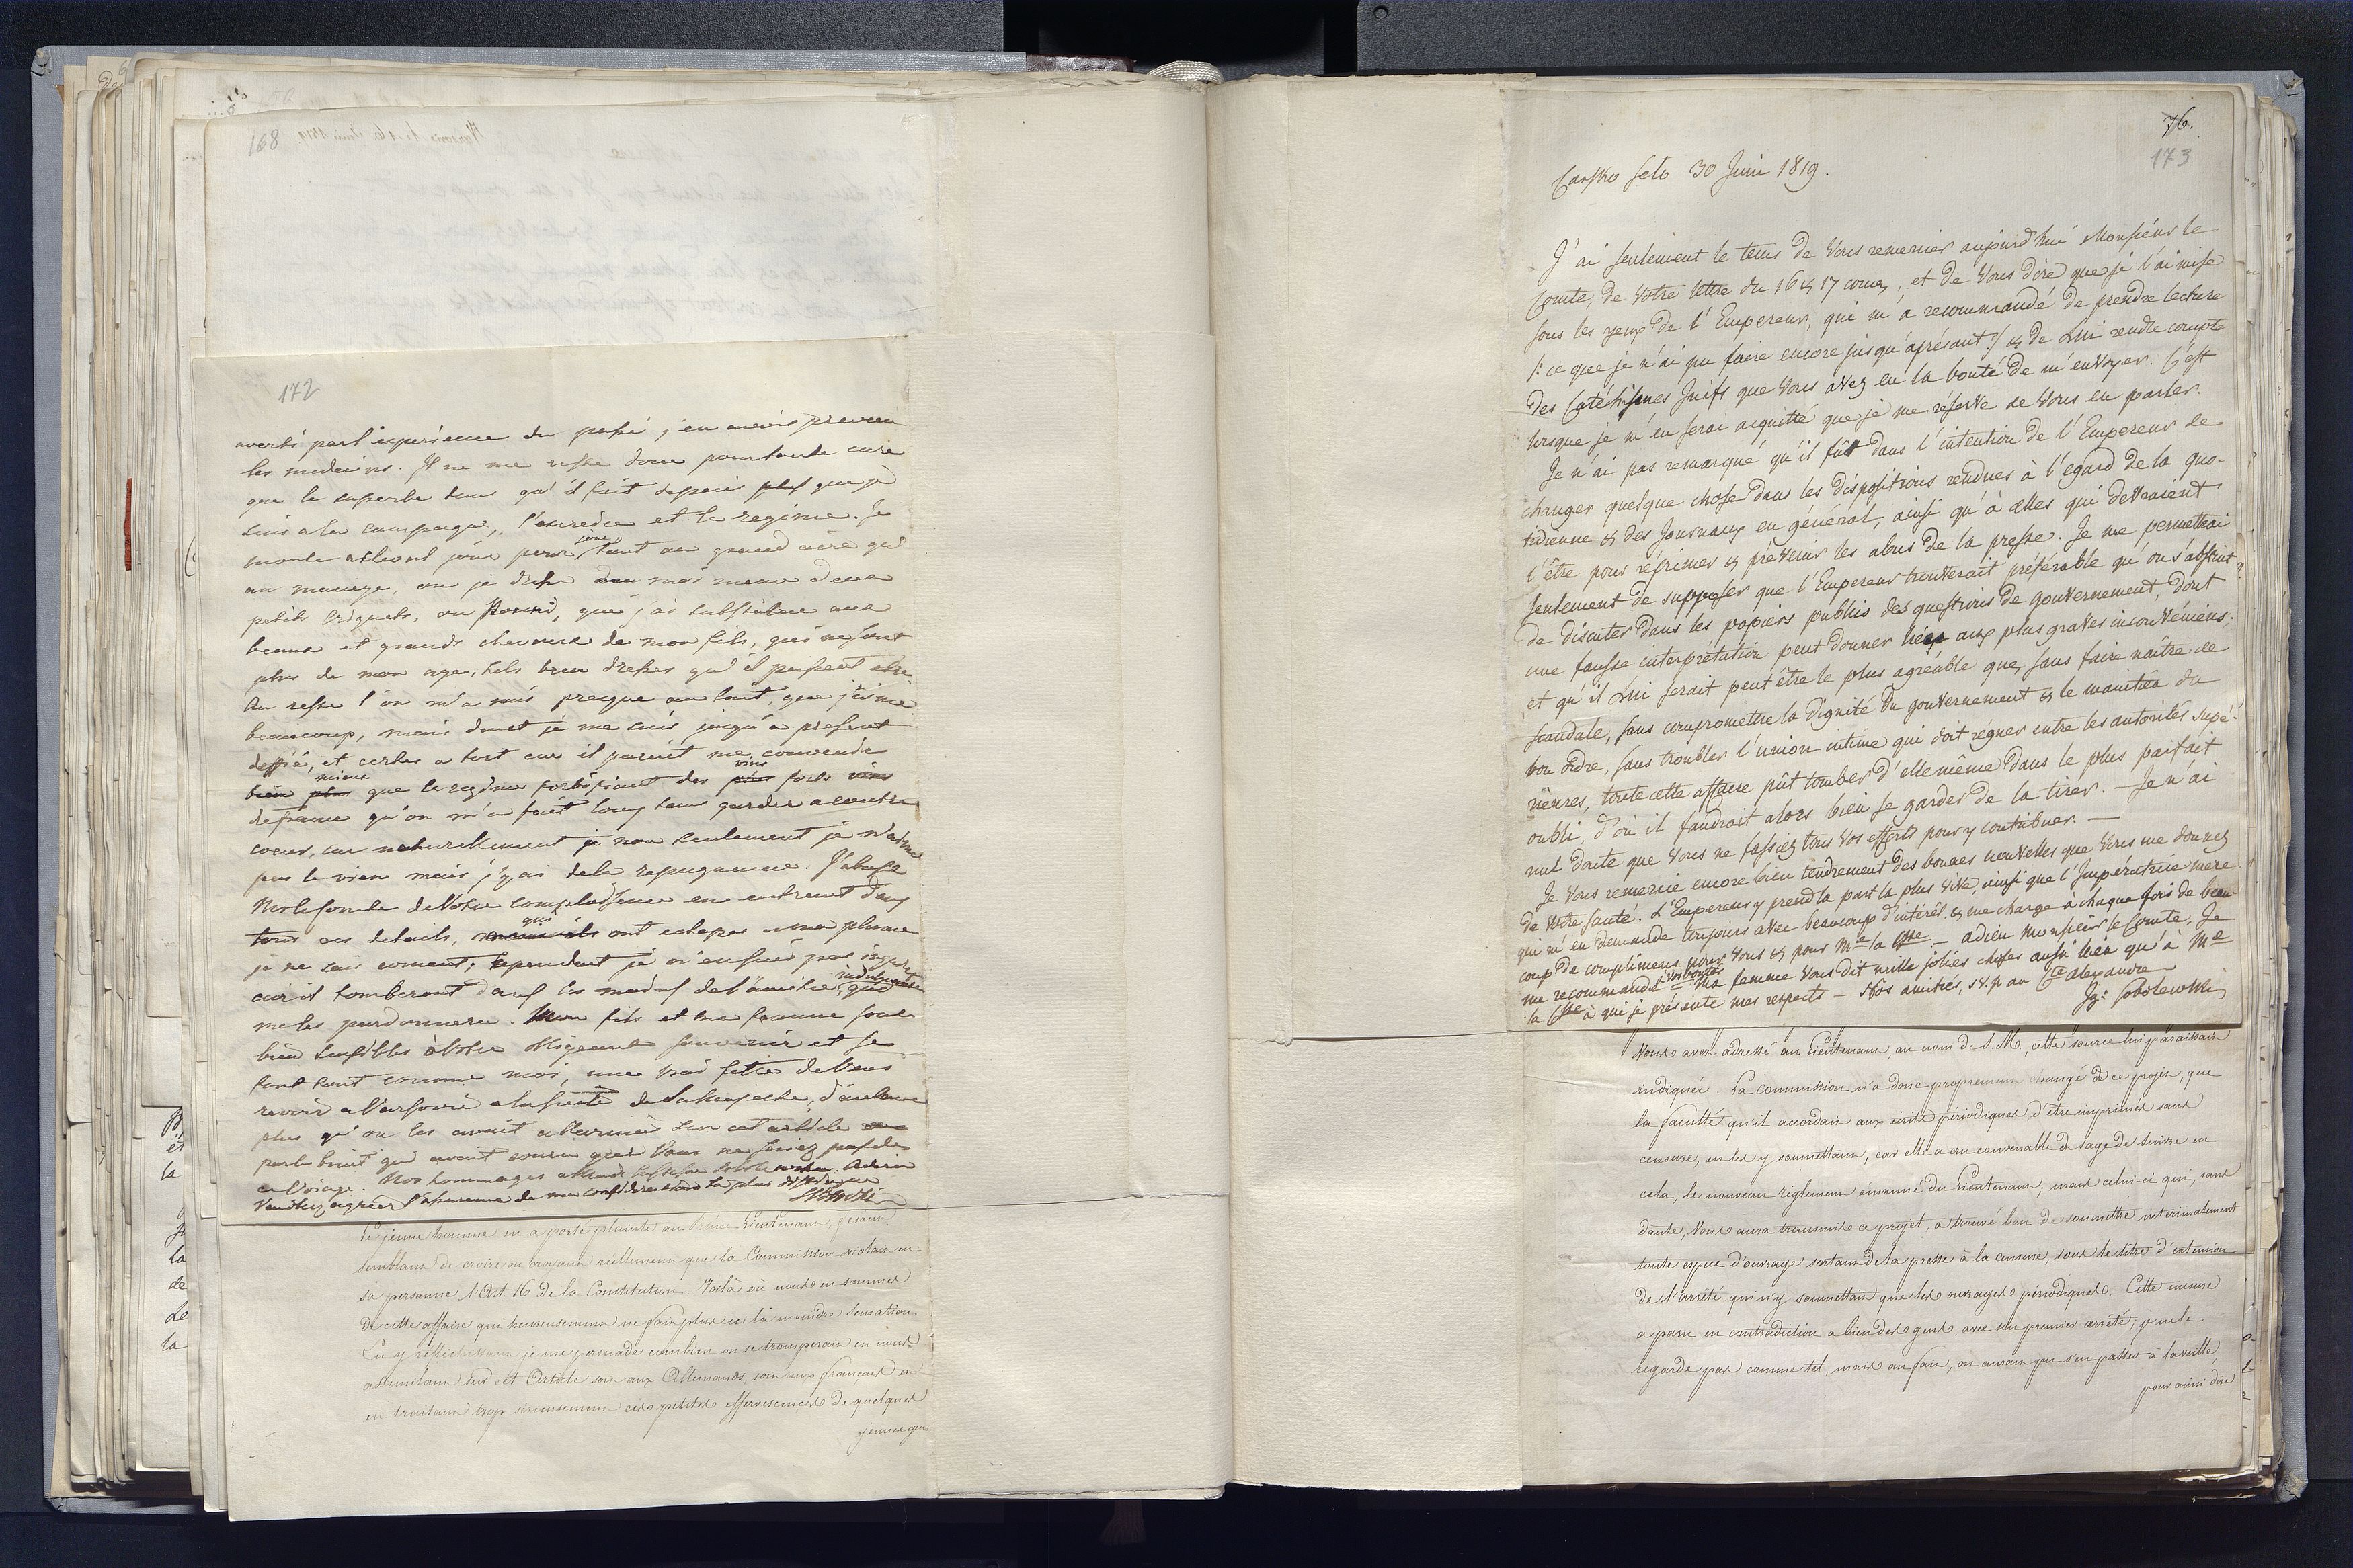 168
172
averti par l'experience du passé, j'en avais prevenu
les medecins. Il ne me reste donc pour toute cure
que le superbe tems qu'il fait depuis que je
suis a la campagne, l'exercice et le regime. Je
monte a cheval jour pour jour, tant au grand aire qu'
au manege, ou je dresse moi meme deux
petits briquets, ou que j'ai substitué aux
beaux et grands chevaux de mon fils, qui ne sont
plus de mon age, tels bien dressés qu'il puissent etre.
Au reste l'on m'a mis presque au lait, que j'aime
beaucoup, mais dont je me suis jusqu'a present
deffié, et certes a tort car il parait me convenir
bien mieux que le regime fortifiant des vins forts
de france qu'on m'a fait long tems garder a contre
coeur, car naturellement non seulement je n'aime
pas le vin mais j'y ai de la repugnance. J'abuse
de Votre complaisance en entrant dans
tous ces details, qui ont echapé a ma plume
je ne sais coment; cependant je n'en suis pas inquiet
car il tomberont dans les mains de l'amitié indulgente, qui
me les pardonnera. Mon fils et sa femme sont
bien sensibles à Votre obligeant souvenir et se
font tout comme moi, une vrai fete de Vous
revoir a Varsovie a la suite de Sa Majesté, d'autant
plus qu'on les avait allarmés sur cet article
par le bruit qui avait couru que Vous ne seriez pas de
ce voiage. Nos hommages a Adieu
Veuillez agréer l'assurance de ma consideration la plus distinguée
le jeune homme en a porté plainte au Prince Lieutenant, fesant
semblant de croire ou croyant réellement que la Commission violait en
sa personne l'Art. 16 de la Constitution. Voilà où nous en sommes
de cette affaire qui heureusement ne fait plus ici la moindre sensation.
En y réfléchissant je me persuade combien on se tromperait en nous
assimilant sur cet Article soit aux Allemands, soit aux français et
en traitant trop sérieusement ces petites effervescences de quelques
jeunes gens
76.
173
Carsko Selo 30 Juin 1819.
J'ai seulement le tems de Vous remercier aujourd'hui Monsieur le
Comte, de Votre lettre du 16 & 17 cour., et de Vous dire que je l'ai mise
sous les yeux de l'Empereur, qui m'a recommandé de prendre lecture
/: ce que je n'ai pu faire encore jusqu'àprésent :/ & de Lui rendre compte
des Catéchismes Juifs que Vous avez eu la bonté de m'envoyer. C'est
lorsque je m'en serai acquitté que je me réserve de Vous en parler.
Je n'ai pas remarqué qu'il fût dans l'intention de l'Empereur de
changer quelque chose dans les dispositions rendues à l'egard de la quo-
tidienne & des Journaux en général, ainsi qu'à celles qui devraient
l'être pour réprimer & prévenir les abus de la presse. Je me permettrai
seulement de supposer que l'Empereur trouverait préférable qu'on s'abstint
de discuter dans les papiers publics des questions de gouvernement, dont
une fausse interprétation peut donner lieu aux plus graves inconvéniens;
et qu'il Lui serait peut être le plus agréable que, sans faire naître de
scandale, sans compromettre la dignité du gouvernement & le maintien du
bon ordre, sans troubler l'union intime qui doit régner entre les autorités supé-
rieures, toute cette affaire pût tomber d'elle même dans le plus parfait
oubli, d'où il faudrait alors bien se garder de la tirer. — Je n'ai
nul doute que Vous ne fassiez tous Vos efforts pour y contribuer. —
Je Vous remercie encore bien tendrement des bonnes nouvelles que Vous me donnez
de Votre santé. L'Empereur y prend la part la plus vive, ainsi que l'Impératrice mere
qui m'en demande toujours avec beaucoup d'intérêt & me charge à chaque fois de beau
coup de complimens pour Vous & pour Me la Csse — adieu Monsieur le Comte. Je
me recommande à vos bontés — Ma femme Vous dit mille jolies choses aussi bien qu'à Me
la Csse à qui je présente mes respects — Nos amitiés, s.v.p. au Cte Alexandre
Ig: Sobolewski
Vous avez adressé au Lieutenant, au nom de S. M., cette source lui paraissait
indiquée. La commission n'a donc proprement changé à ce projet, que
la faculté qu'il accordait aux écrits périodiques d'être imprimés sans
censure, en les y soumettant, car elle a cru convenable & sage de suivre en
cela, le nouveau règlement émanné du Lieutenant; mais celui-ci qui, sans
doute, Vous aura transmis ce projet, a trouvé bon de soumettre intérimalement
toute espèce d'ouvrage sortant de la presse à la censure, sous le titre d'extension
de l'arrêté qui n'y soumettait que les ouvrages périodiques. Cette mesure
a paru en contradiction a bien des gens avec son premier arrêté, je ne la
regarde pas comme tel, mais au fait, on aurait pu s'en passer à la veille,
pour ainsi dire